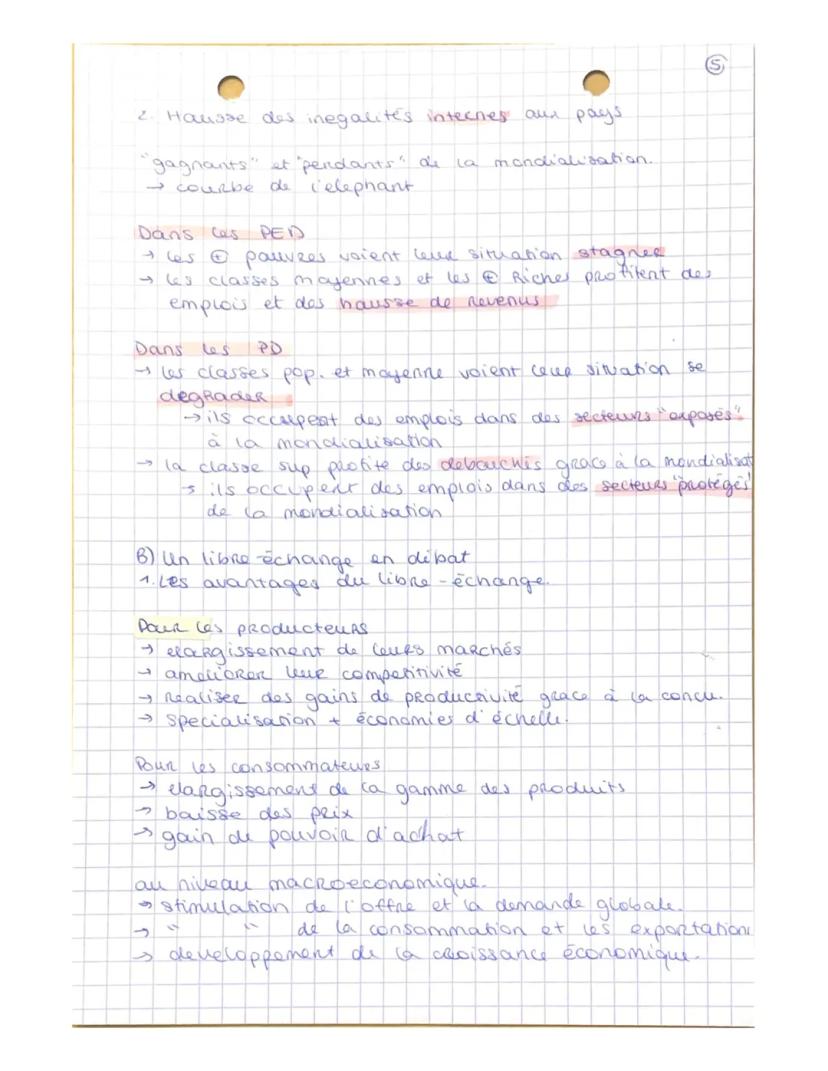 5
2. Hausse des inegalités internes aux pays
"gagnants" et "perdants" de la mondialisation.
→ courbe de l'elephant
Dans les PED
→ les ⊕ pauvres voient leur situation stagner
→ les classes moyennes et les ⊕ Riches profitent des
emplois et des hausse de revenus
Dans les PD
→ les classes pop. et moyenne voient leur situation se
degrader
→ ils occupent des emplois dans des secteurs "exposés"
à la mondialisation
→ la classe sup profite des debouchés grace à la mondialisat
→ ils occupent des emplois dans des secteurs "protégés"
de la mondialisation
B) Un libre-échange en débat
1. Les avantages du libre-échange.
Pour les producteurs
→ elargissement de leurs marchés
→ ameliorer leur competitivité
→ Realiser des gains de productivité grace à la concu.
→ specialisation + économies d'échelle.
Pour les consommateurs
→ elargissement de la gamme des produits
→ baisse des prix
→ gain de pouvoir d'achat
au niveau macroeconomique.
→ stimulation de l'offre et la demande globale.
→ " " de la consommation et les exportations
→ developpement de la croissance économique.